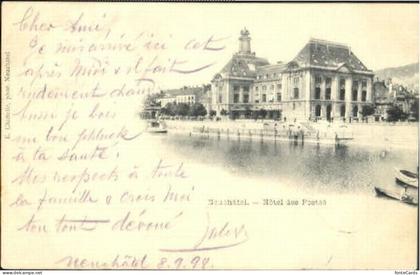 Cher Ami,
Je m'arrive ici cet
après Midi et il fait
rudement chaud
aussi je bois
un bon schluck
à ta santé.
Mes respects à toute
la famille et crois Moi
ton tout dévoué
Jules
Neuchâtel 8.9.98
Neuchâtel. — Hôtel des Postes
E. Chiffelle, phot. Neuchâtel
fontecards.com